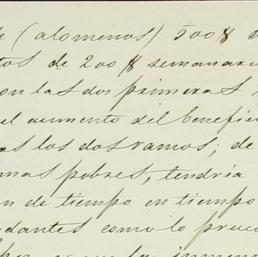 (alomenos) 500 $
tos de 200 $ semanari
on las dos primeras
el aumento del benefici
as los dos ramos; de
mas pobres, tendria
n de tiempo en tiempo
dantes como lo prec